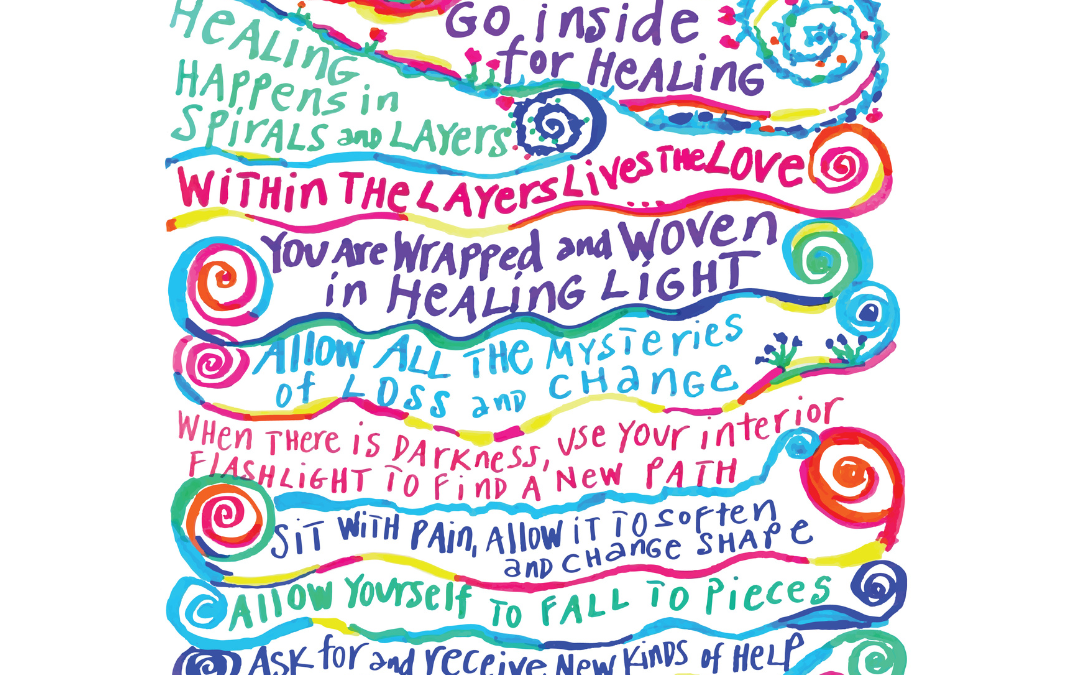 GO inside
for HeALiNG
HeALing
HAPPens in
SPirALS and LAYers
WiTHin THe LAYers Lives THe LOVe ...
YOU Are WrAPPed and WOVen
in HeALing LiGHT
ALLOW ALL THE MYSTeries
of LOSS and CHANGe
WHen THere is DArKness, USe YOUr interior
FLASHLiGHT TO FinD A New PATH
SiT WiTH PAin, ALLOW iT TO SOFTen
and CHANGe SHAPe
ALLOW YOUrself TO FALL TO Pieces
ASK for and receive New KinDS of HeLP